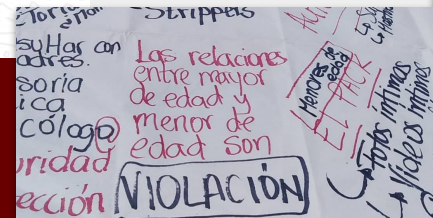 Strippers
sultar con
adres.
soria
ica
cólogo
uridad
ección
Las relaciones
entre mayor
de edad y
menor de
edad son
VIOLACIÓN
Menores de
edad
EL PACK
↳ Fotos íntimas
↳ Videos íntimos